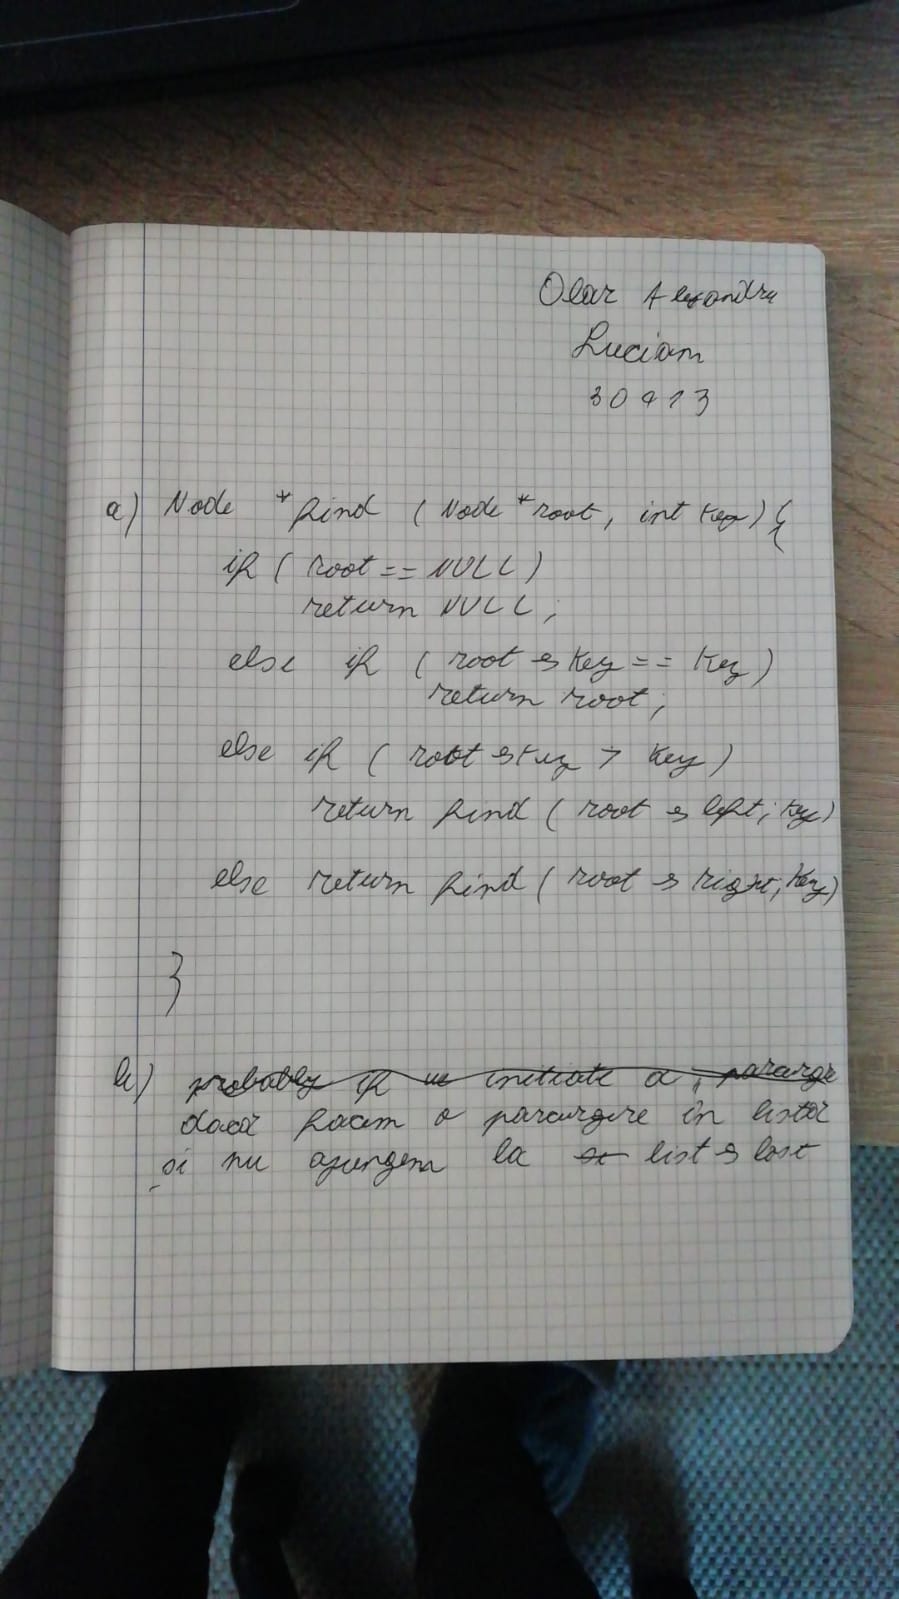 Olar Alexandru
Lucian
30413
a) Node *find (Node *root, int key) {
if (root == NULL)
return NULL;
else if (root → key == key)
return root;
else if (root → key > key)
return find (root → left; key)
else return find (root → right; key)
}
b) probably if we initiate a parcurge
dacă facem o parcurgere în listă
și nu ajungem la list → last